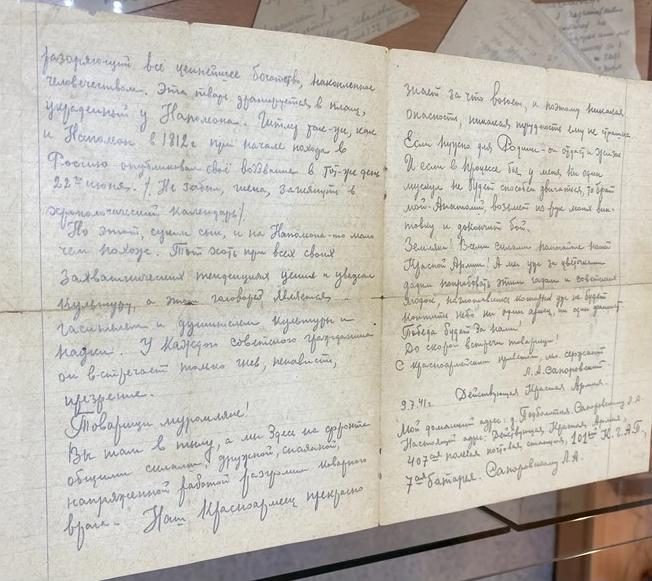 разоряющий все ценнейшее богатство, накопленное
человечеством. Эта тварь драпируется в плащ,
украденный у Наполеона. Гитлер так-же, как
и Наполеон в 1812г при начале похода в
Россию опубликовал своё воззвание в тот-же день
22го июня. /. Не забыл, гиена, заглянуть в
хронологический календарь/.
Но этот, сукин сын, и на Наполеона-то мало
чем похож. Тот хоть при всех своих
захватнических тенденциях ценил и уважал
культуру, а этот заговорщ является
гасителем и душителем культуры и
науки. У каждого советского гражданина
он встречает только гнев, ненависть,
презрение.
Товарищи муромляне!
Вы там в тылу, а мы здесь на фронте
общими силами, дружной, спаянной,
напряженной работой разгромим коварного
врага. Наш Красноармеец прекрасно
знает за что воюет, и поэтому никакая
опасность, никакая трудность ему не страшна.
Если нужно для Родины - он отдаст и жизнь
И если в процессе боя у меня ни один
мускул не будет способен двигаться, то брат
мой - Анатолий, возьмет из рук моих вин-
товку и докончит бой.
Земляки! Всеми силами помогайте нашей
Красной Армии! А мы уж за цветочками
дадим попробовать этим гадам и советских
ягодок, накопившись которых уж не будет
коптить небо ни один ариец, ни один
Победа будет за нами!
До скорой встречи товарищи!
С красноармейским приветом, мл. сержант
Л.А. Сапоровский
9.7.41г. Действующая Красная Армия.
Мой домашний адрес: д. Подболотня. Сапоровскому Л.А.
Настоящий адрес: Действующая Красная Армия,
407ая полевая почтовая станция, 101ый К.Г.А.П.,
7ая батарея. Сапоровскому Л.А.